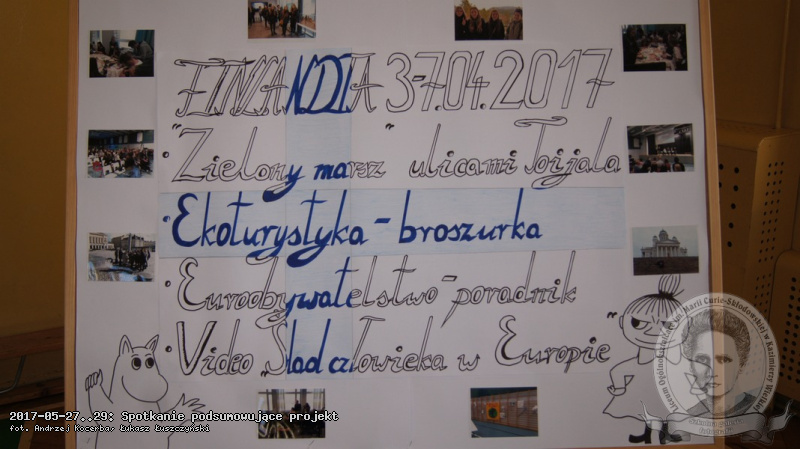 FINLANDIA 3-7.04.2017
• "Zielony marsz" ulicami Toijala
• Ekoturystyka - broszurka
• Euroobywatelstwo - poradnik
• Video „Ślad człowieka w Europie"
2017-05-27..29: Spotkanie podsumowujące projekt
fot. Andrzej Kocerba, Łukasz Łuszczyński
Liceum Ogólnokształcące im. Marii Curie-Skłodowskiej w Kazimierzy Wielkiej